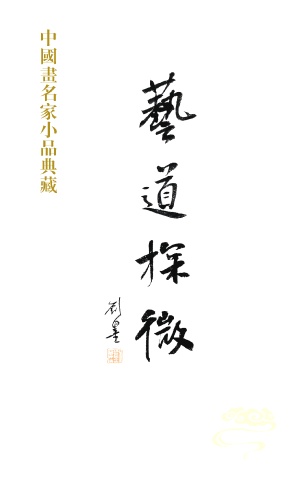 中國畫名家小品典藏
藝道探微
劉墨